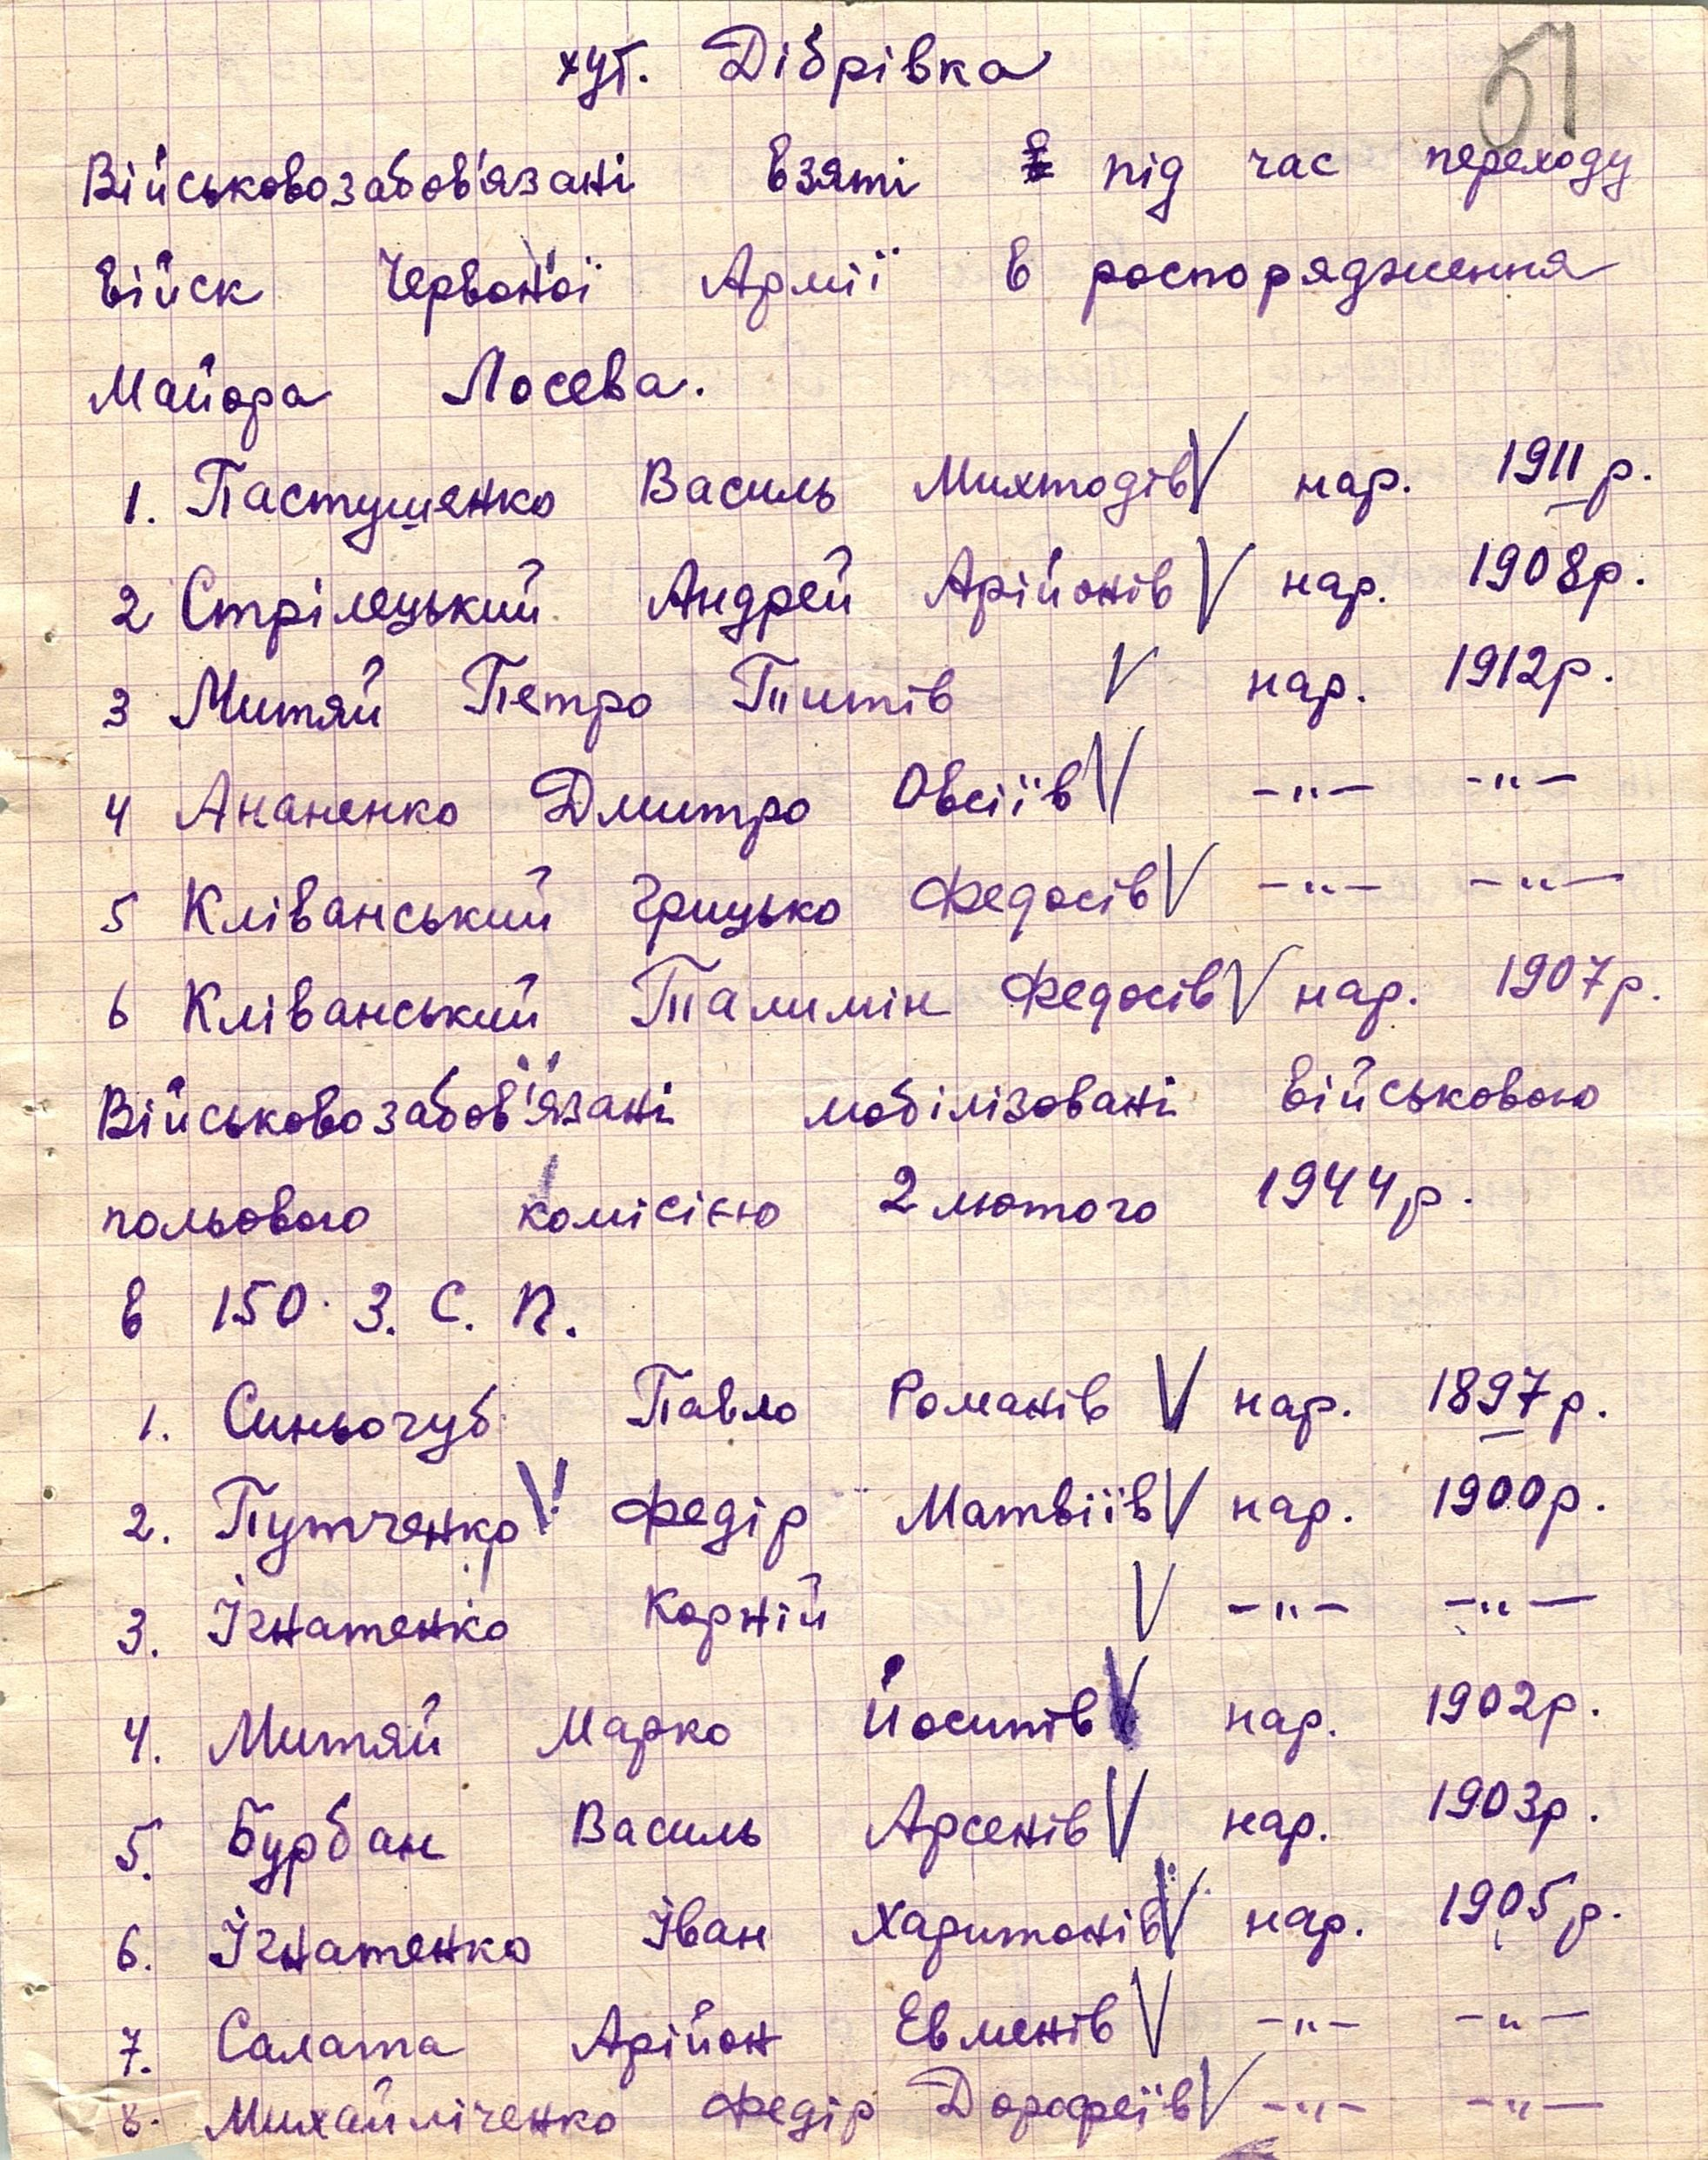 51
хут. Дібрівка
Військовозабов'язані взяті під час переходу
військ Червоної Армії в роспорядження
Майора Лосева.
1. Пастушенко Василь Михтодів V нар. 1911 р.
2 Стрілецький Андрей Арійонів V нар. 1908 р.
3 Митяй Петро Титів V нар. 1912 р.
4 Ананенко Дмитро Овсіїв V -"- -"-
5 Кліванський Грицько Федосів V -"- -"-
6 Кліванський Талимін Федосів V нар. 1907 р.
Військовозабов'язані мобілізовані військовою
польовою комісією 2 лютого 1944 р.
в 150 З. С. П.
1. Синьочуб Павло Романів V нар. 1897 р.
2. Путченко V Федір Матвіїв V нар. 1900 р.
3. Ігнатенко Корній V -"- -"-
4. Митяй Марко Йосипів V нар. 1902 р.
5. Бурбан Василь Арсенів V нар. 1903 р.
6. Ігнатенко Іван Харитонів V нар. 1905 р.
7. Салата Арійон Евменів V -"- -"-
8. Михайліченко Федір Дорофеїв V -"- -"-